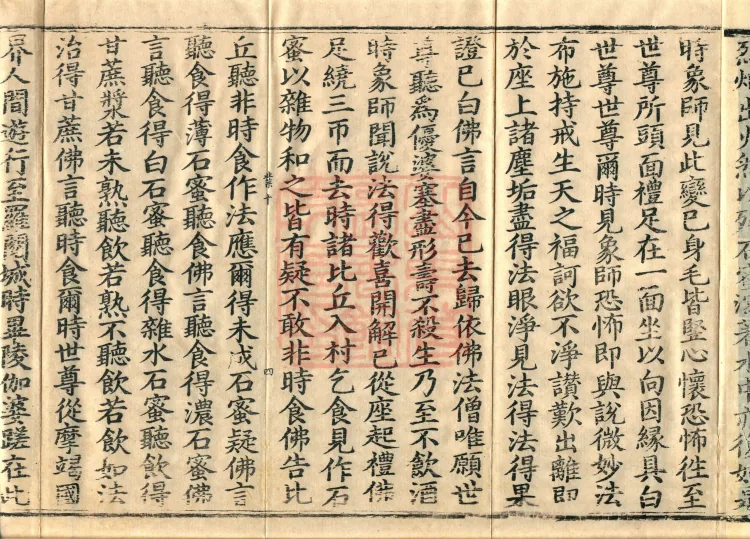 時象師見此變已身毛皆竪心懷恐怖徃至
世尊所頭面禮足在一面坐以向因緣具白
世尊世尊爾時見象師恐怖即與說微妙法
布施持戒生天之福訶欲不淨讃歎出離即
於座上諸塵垢盡得法眼淨見法得法得果
證已白佛言自今已去歸依佛法僧唯願世
尊聽爲優婆塞盡形壽不殺生乃至不飲酒
時象師聞說法得歡喜開解已從座起禮佛
足繞三帀而去時諸比丘入村乞食見作石
蜜以雜物和之皆有疑不敢非時食佛告比
十 四
丘聽非時食作法應爾得未成石蜜疑佛言
聽食得薄石蜜聽食佛言聽食得濃石蜜佛
言聽食得白石蜜聽食得雜水石蜜聽飲得
甘蔗漿若未熟聽飲若熟不聽飲若飲如法
治得甘蔗佛言聽時食爾時世尊從摩竭國
界人間遊行至羅閱城時畢陵伽婆蹉在此